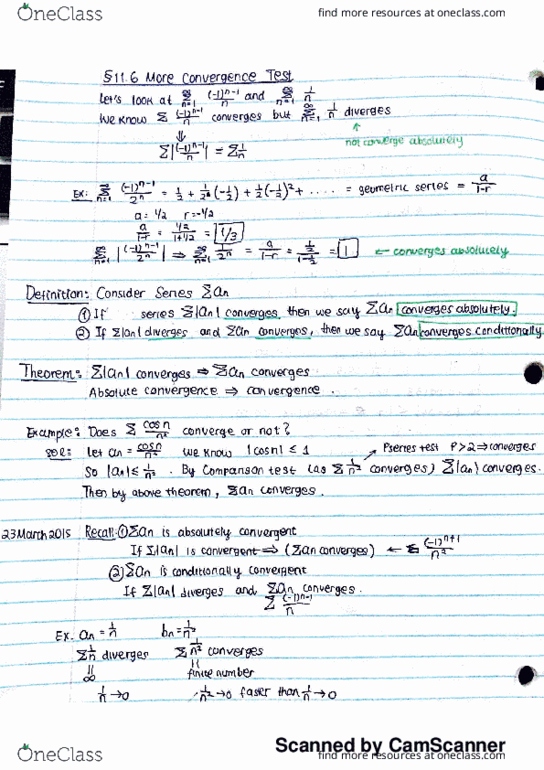 OneClass
find more resources at oneclass.com
§11.6 More Convergence Test
Let's look at ∑_{n=1}^∞ (-1)^{n-1}/n and ∑_{n=1}^∞ 1/n
We know ∑ (-1)^{n-1}/n converges but ∑_{n=1}^∞ 1/n diverges
⇓
↑
not converge absolutely
∑|(-1)^{n-1}/n| = ∑ 1/n
Ex: ∑_{n=1}^∞ (-1)^{n-1}/2^n = 1/2 + 1/2(-1/2) + 1/2(-1/2)² + ..... = geometric series = a/1-r
a = 1/2 r = -1/2
a/1-r = 1/2/1+1/2 = 1/3
∑_{n=1}^∞ |(-1)^{n-1}/2^n| ⇒ ∑_{n=1}^∞ 1/2^n = a/1-r = 1/2/1-1/2 = 1 ← converges absolutely
Definition: Consider Series ∑an
① If series ∑|an| converges, then we say ∑an converges absolutely.
② If ∑|an| diverges and ∑an converges, then we say ∑an converges conditionally
Theorem: ∑|an| converges ⇒ ∑an converges
Absolute convergence ⇒ convergence.
Example: Does ∑ cosn/n² converge or not?
Sol: let an = cosn/n² we know |cosn| ≤ 1 Pseries test P>2 ⇒ converges
So |an| ≤ 1/n². By Comparison test (as ∑ 1/n² converges) ∑|an| converges.
Then by above theorem, ∑an converges.
23 March 2015 Recall: ① ∑an is absolutely convergent
If ∑|an| is convergent ⇒ (∑an converges) ← ∑ (-1)^{n+1}/n²
② ∑an is conditionally convergent
If ∑|an| diverges and ∑an converges.
∑ (-1)^{n-1}/n
Ex. an = 1/n bn = 1/n²
∑ 1/n diverges ∑ 1/n² converges
∞ finite number
1/n → 0 1/n² → 0 faster than 1/n → 0
OneClass
Scanned by CamScanner
find more resources at oneclass.com